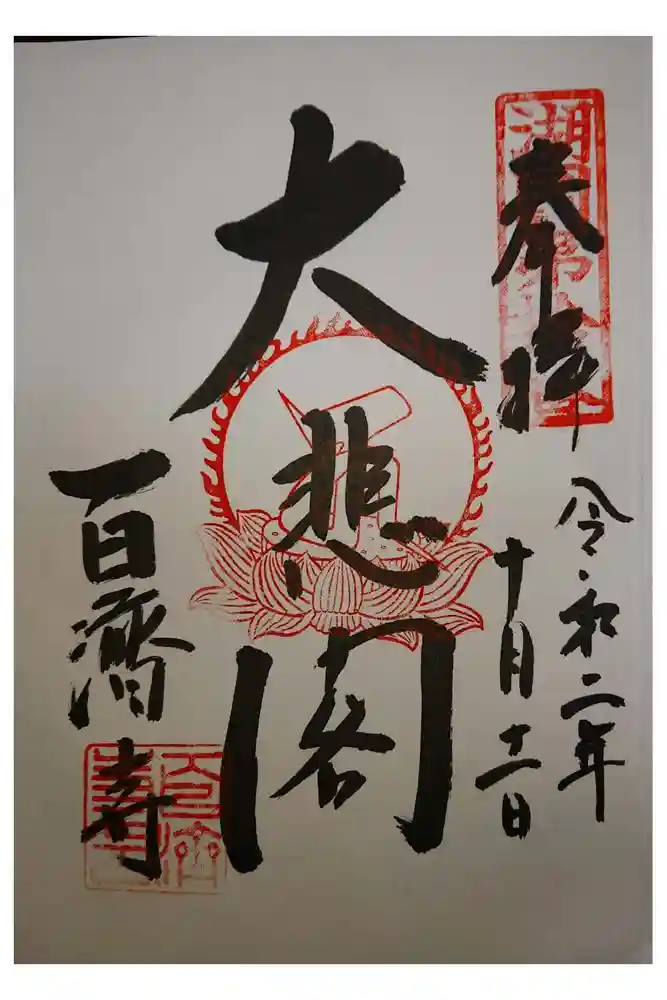 奉拝
令和二年
十月十一日
大悲閣
百済寺